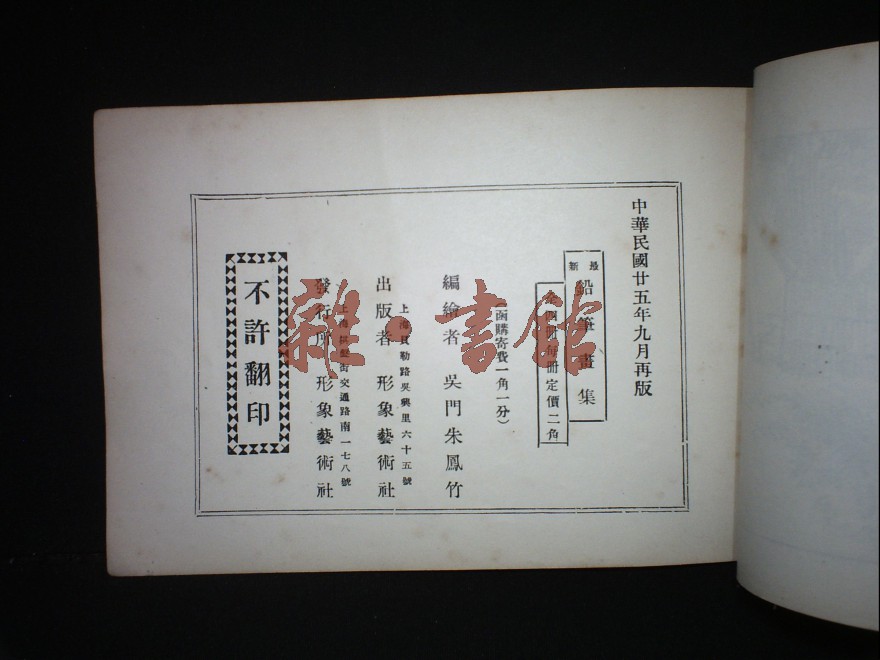 中華民國廿五年九月再版
最新
鉛筆畫集
冊定價二角
函購寄費一角一分）
編繪者 吳門朱鳳竹
上海貝勒路吳興里六十五號
出版者 形象藝術社
上海棋盤街交通路南一七八號
發行所 形象藝術社
不許翻印
雜·書館